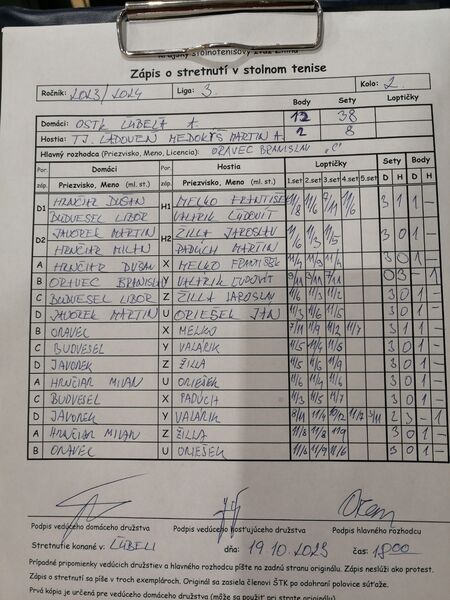 Krajský stolnotenisový zväz Žilina
Zápis o stretnutí v stolnom tenise
Ročník: 2023/2024 Liga: 3. Kolo: 2.
Body Sety Loptičky
Domáci: OSTK ĽUBEĽA A 12 38
Hostia: TJ. LADOVEŇ MEDOKÝŠ MARTIN A. 2 8
Hlavný rozhodca (Priezvisko, Meno, Licencia): ORAVEC BRANISLAV "C"
Por. Domáci Por. Hostia Loptičky Sety Body
záp. Priezvisko, Meno (ml. st.) záp. Priezvisko, Meno (ml. st.) 1.set 2.set 3.set 4.set 5.set D H D H
D1 HRNČIAR DUŠAN H1 MELKO FRANTIŠEK 11/8 11/6 7/11 11/6 3 1 1 -
BUDVESEL LIBOR VALÁRIK ĽUDOVÍT
D2 JAVOREK MARTIN H2 ŽILLA JAROSLAV 11/6 11/3 11/5 3 0 1 -
HRNČIAR MILAN PADÚCH MARTIN
A HRNČIAR DUŠAN X MELKO FRANTIŠEK 3 0 1 -
B ORAVEC BRANISLAV Y VALÁRIK ĽUDOVÍT 9/11 3/11 7/11 0 3 - 1
C BUDVESEL LIBOR Z ŽILLA JAROSLAV 11/6 11/3 11/2 3 0 1 -
D JAVOREK MARTIN U ORIEŠEK JÁN 11/3 11/6 11/5 3 0 1 -
B ORAVEC X MELKO 7/11 11/9 11/2 11/7 3 1 1 -
C BUDVESEL Y VALÁRIK 11/5 11/4 11/6 3 0 1 -
D JAVOREK Z ŽILLA 11/5 11/6 11/9 3 0 1 -
A HRNČIAR MILAN U ORIEŠEK 11/6 11/4 11/6 3 0 1 -
C BUDVESEL X PADÚCH 11/3 11/5 11/7 3 0 1 -
D JAVOREK Y VALÁRIK 8/11 11/4 10/12 11/7 3/11 2 3 - 1
A HRNČIAR MILAN Z ŽILLA 11/8 11/8 11/9 3 0 1 -
B ORAVEC U ORIEŠEK 11/8 11/9 11/6 3 0 1 -
Podpis vedúceho domáceho družstva Podpis vedúceho hosťujúceho družstva Podpis hlavného rozhodcu
Stretnutie konané v: ĽUBELI dňa: 19.10.2023 čas: 18:00
Prípadné pripomienky vedúcich družstiev a hlavného rozhodcu píšte na zadnú stranu originálu. Zápis neslúži ako protest.
Zápis o stretnutí sa píše v troch exemplároch. Originál sa zasiela členovi ŠTK po odohraní polovice súťaže.
Prvá kópia je určená pre vedúceho domáceho družstva (môže sa použiť pri strate originálu).